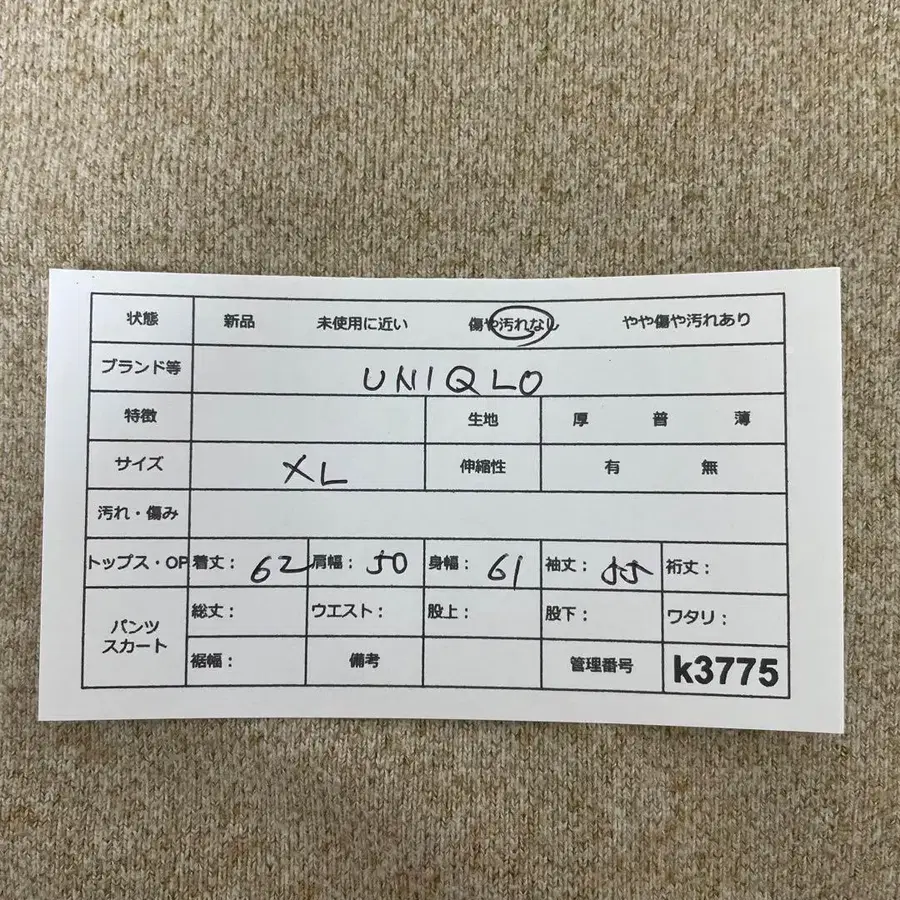 状態 新品 未使用に近い 傷や汚れなし やや傷や汚れあり
ブランド等 UNIQLO
特徴 生地 厚 普 薄
サイズ XL 伸縮性 有 無
汚れ・傷み
トップス・OP 着丈: 62 肩幅: 50 身幅: 61 袖丈: 55 裄丈:
パンツ スカート 総丈: ウエスト: 股上: 股下: ワタリ:
裾幅: 備考 管理番号 k3775